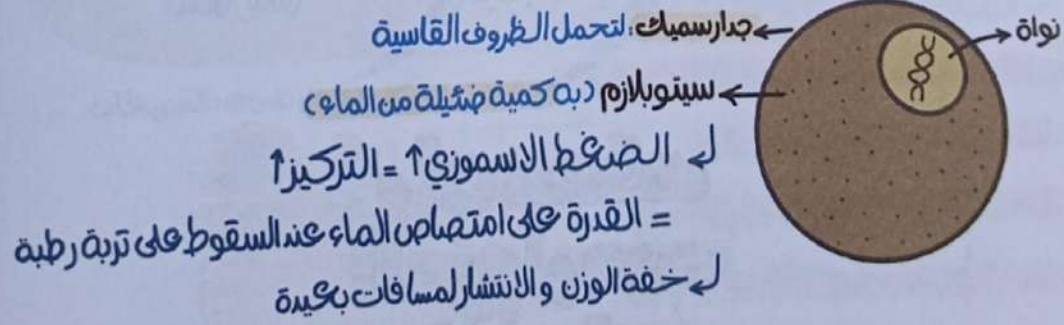 نواة
جدار سميك: لتحمل الظروف القاسية
سيتوبلازم (به كمية ضئيلة من الماء)
الضغط الاسموزي ↑ = التركيز ↑
= القدرة على امتصاص الماء عند السقوط على تربة رطبة
خفة الوزن و الانتشار لمسافات بعيدة